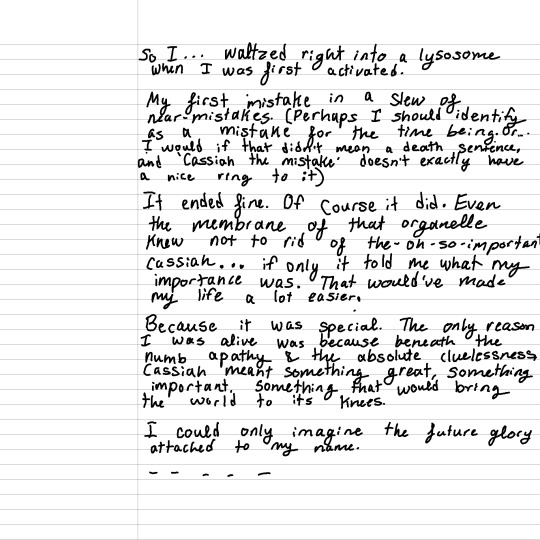 So I... waltzed right into a lysosome
when I was first activated.
My first mistake in a slew of
near-mistakes. (Perhaps I should identify
as a mistake for the time being. or...
I would if that didn't mean a death sentence,
and 'Cassiah the mistake' doesn't exactly have
a nice ring to it)
It ended fine. Of course it did. Even
the membrane of that organelle
knew not to rid of the-oh-so-important
cassiah... if only it told me what my
importance was. That would've made
my life a lot easier.
Because it was special. The only reason
I was alive was because beneath the
numb apathy & the absolute cluelessness,
Cassiah meant something great, something
important, something that would bring
the world to its knees.
I could only imagine the future glory
attached to my name.
- - - - -